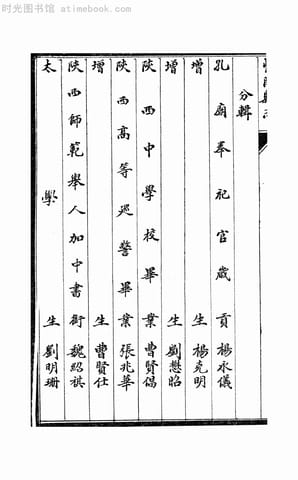 时光图书馆 - atimebook.com
分輯
孔廟奉祀官歲貢楊永儀
增生楊克明
增生劉懋昭
陝西中學校畢業曹賢倡
陝西高等巡警畢業張兆華
增生曹賢仕
陝西師範舉人加中書銜魏紹祺
太學生劉明珊